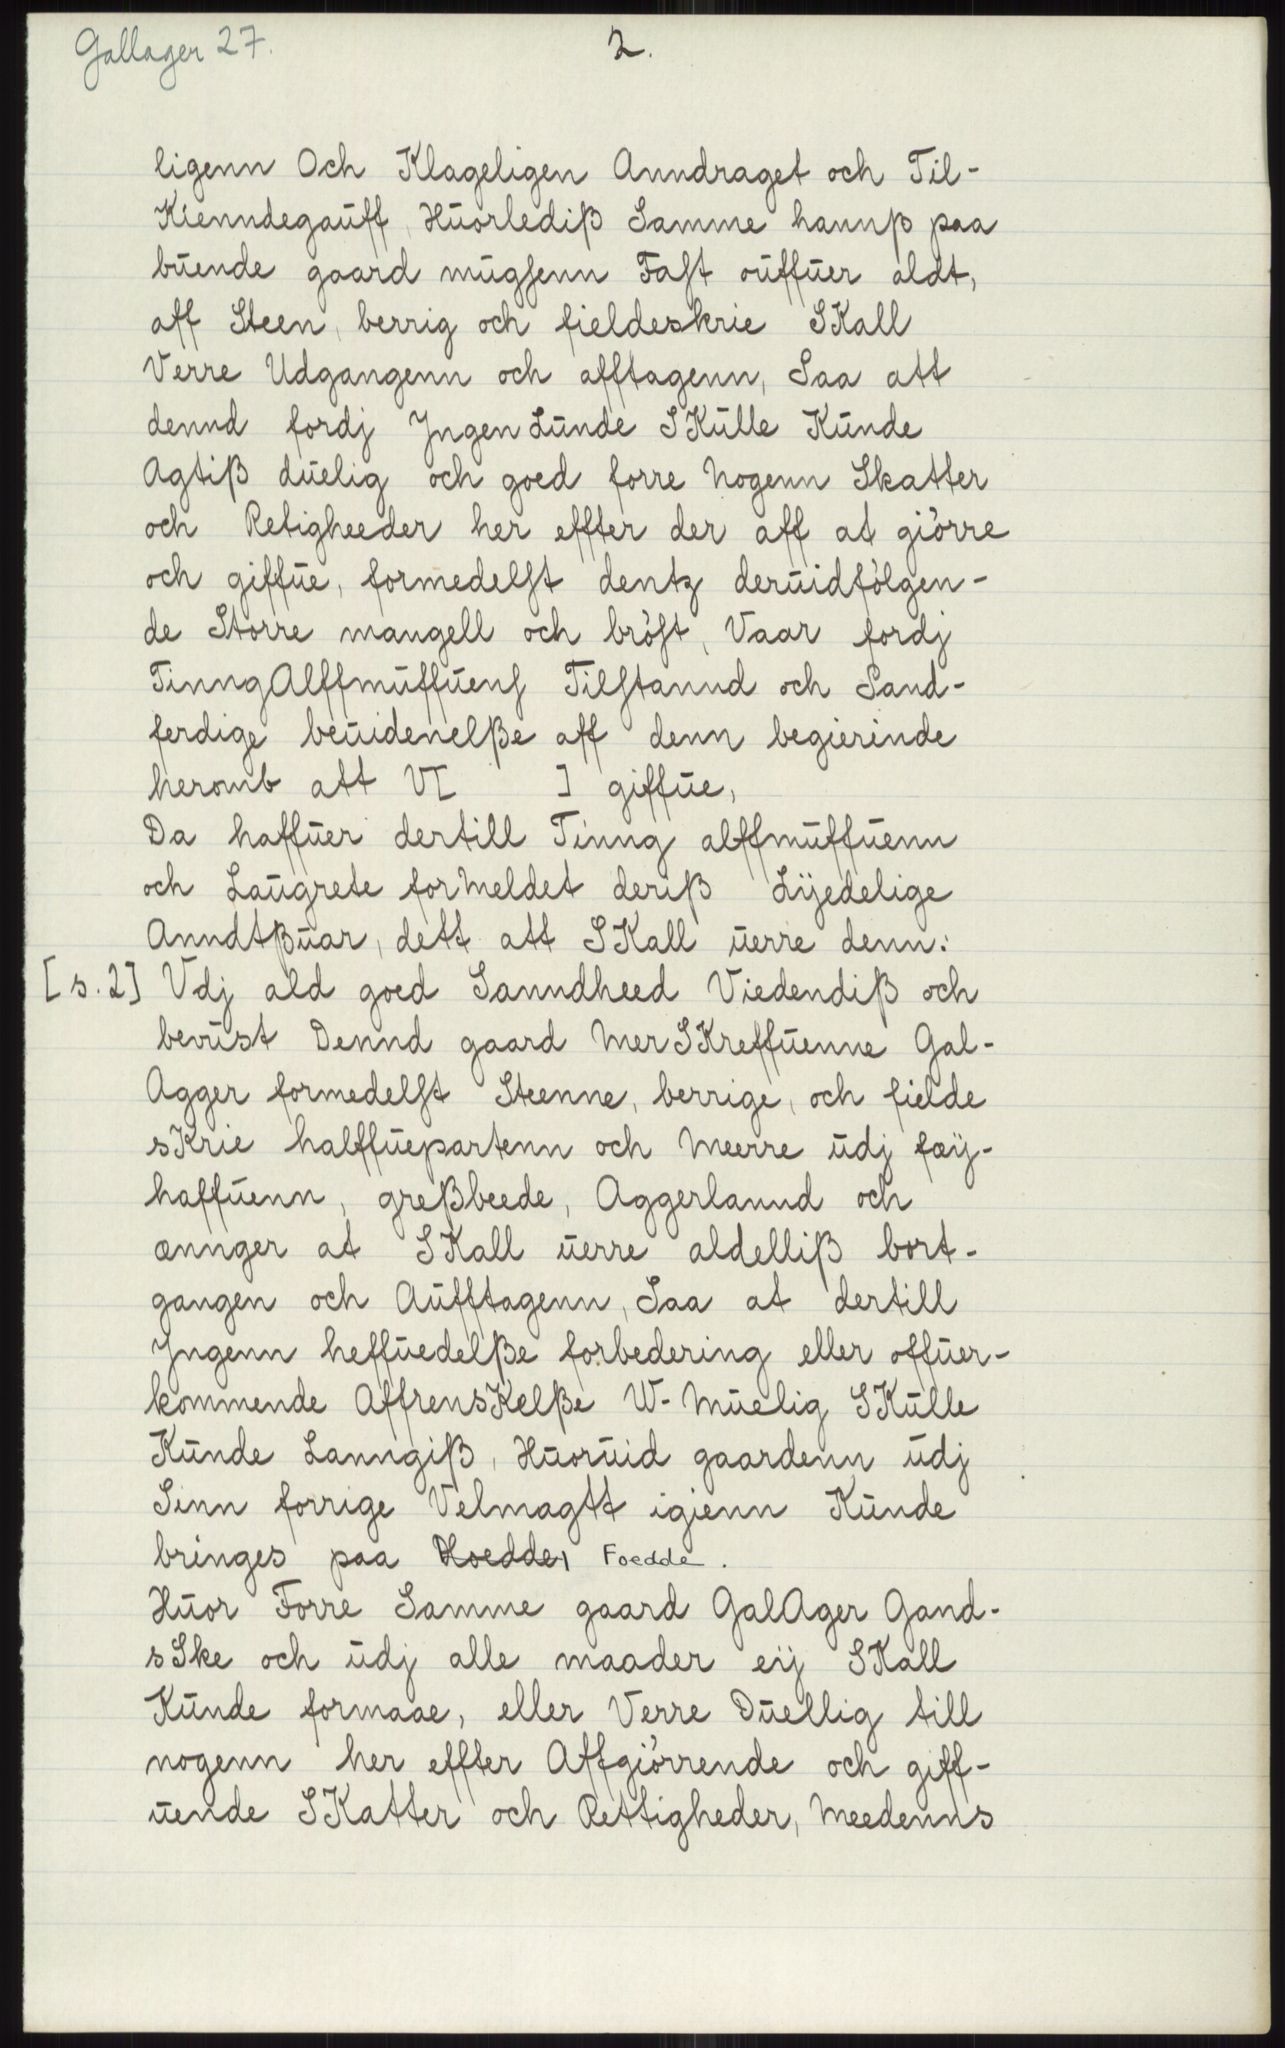 Gallager 27.
2.
ligenn Och Klageligen Anndraget och Til-
Kienndegauff, Huorlediß Samme hannß paa
buende gaard mugsenn Fast ouffuer aldt,
aff Steen, berrig och fieldeskrie SKall
Verre Udgangenn och afftagenn, Saa att
dennd fordj Jngen Lunde SKulle Kunde
Agtiß duelig och goed forre Nogenn Skatter
och Retigheeder her effter der aff at giörre
och giffue, formedelst dentz deruidfölgen-
de Storre mangell och bröst, Vaar fordj
TinngAlffmuffuens Tilstannd och Sand-
ferdige beuidenelße aff denn begierinde
heromb att V[ ] giffue,
Da haffuer dertill Tinng alffmuffuenn
och Laugrete forMeldet deriß Lÿedelige
Anndtßuar, dett att SKall uerre denn:
[s.2] Vdj ald goed Sanndheed Viedendiß och
bevust Dennd gaard MerSKreffuenne Gal-
Agger formedelst Steenne, berrige, och fielde
sKrie halffuepartenn och Meerre udj fæÿ-
haffuenn, greßbeede, Aggerlannd och
ænnger at SKall uerre aldelliß bort-
gangen och Aufftagenn, Saa at dertill
Jngenn heffuedelße forbedering eller offuer-
kommende AffrensKelße W- Muelig SKulle
Kunde Lanngiß, Huoruid gaardenn udj
Sinn forrige Velmagtt igienn Kunde
bringes paa Hoedder Foedde.
Huor Forre Samme gaard GalAger Gand-
sSke och udj alle maader eÿ SKall
Kunde formaae, eller Verre Duellig till
nogenn her effter Affgiörrende och giff-
uende SKatter och Rettigheder, Meedenns